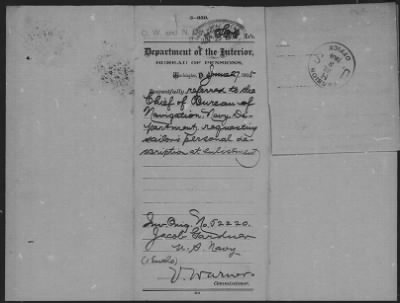 3-060.
O. W. and N. Div.
Department of the Interior,
BUREAU OF PENSIONS,
Washington, D.
Respectfully referred to the
Chief of Bureau of
Navigation, Navy De-
partment, requesting
sailor's personal de-
scription at enlistment
Inv. Orig. No. 52220.
Jacob Gardner
U.S. Navy
V. Warner
Commissioner.